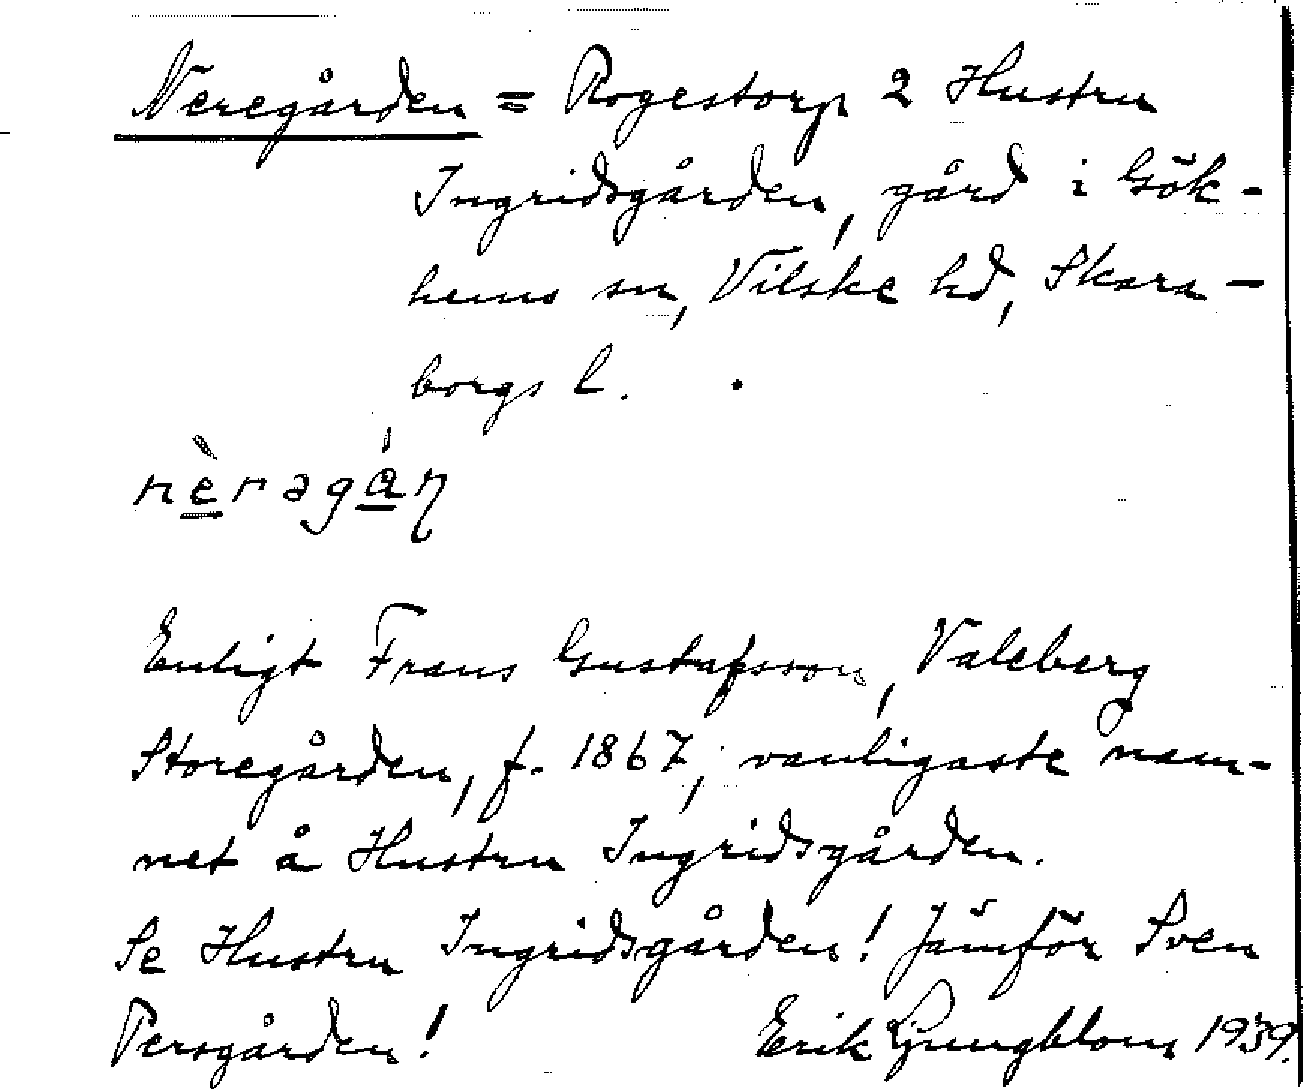 Neregården = Rogestorp 2 Hustru
Ingridsgården, gård i Gök-
hems sn, Vilske hd, Skara-
borgs l.
nè̱ragá̱ɳ
Enligt Frans Gustafsson, Valeberg
Storegården, f. 1867, vanligaste nam-
net å Hustru Ingridsgården.
Se Hustru Ingridsgården! Jämför Sven
Persgården! Erik Ljungblom 1939.